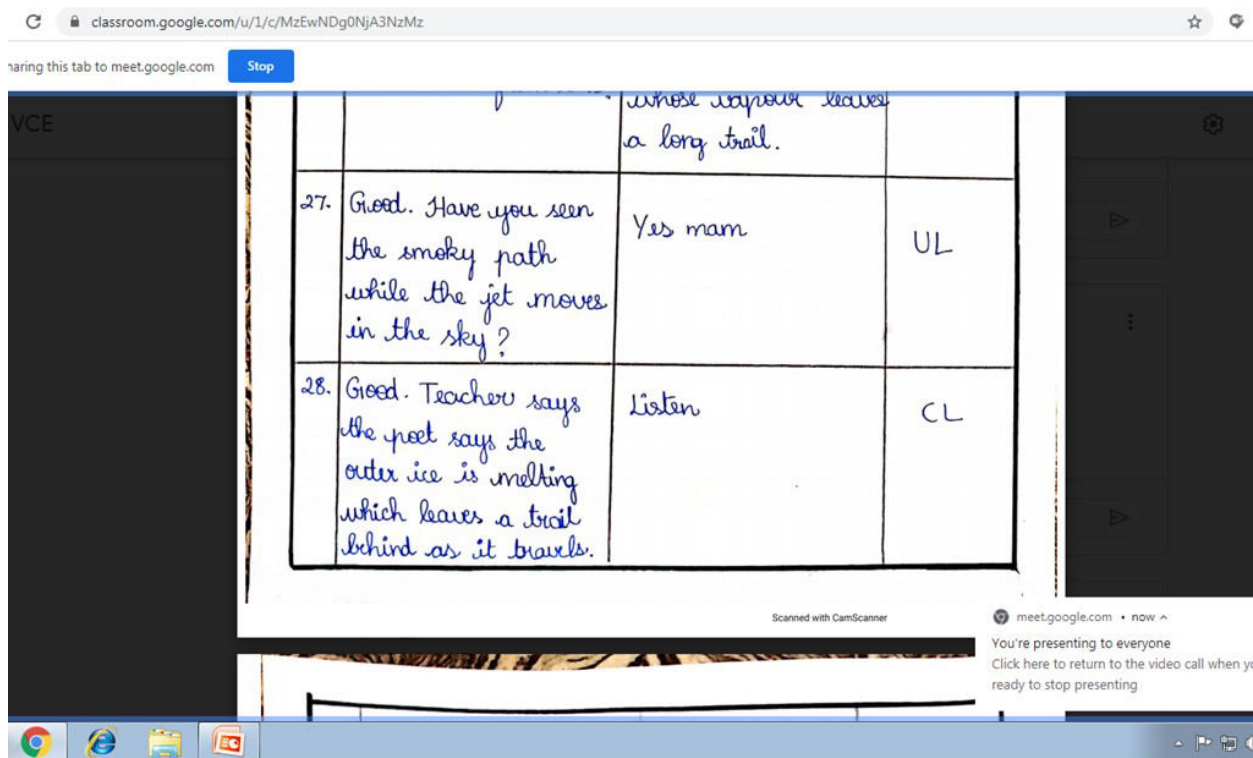 classroom.google.com/u/1/c/MzEwNDg0NjA3NzMz
haring this tab to meet.google.com Stop
VCE
whose vapour leaves
a long trail.
27. Good. Have you seen
the smoky path
while the jet moves
in the sky?
Yes mam
UL
28. Good. Teacher says
the poet says the
outer ice is melting
which leaves a trail
behind as it travels.
Listen
CL
Scanned with CamScanner
meet.google.com • now
You're presenting to everyone
Click here to return to the video call when yo
ready to stop presenting